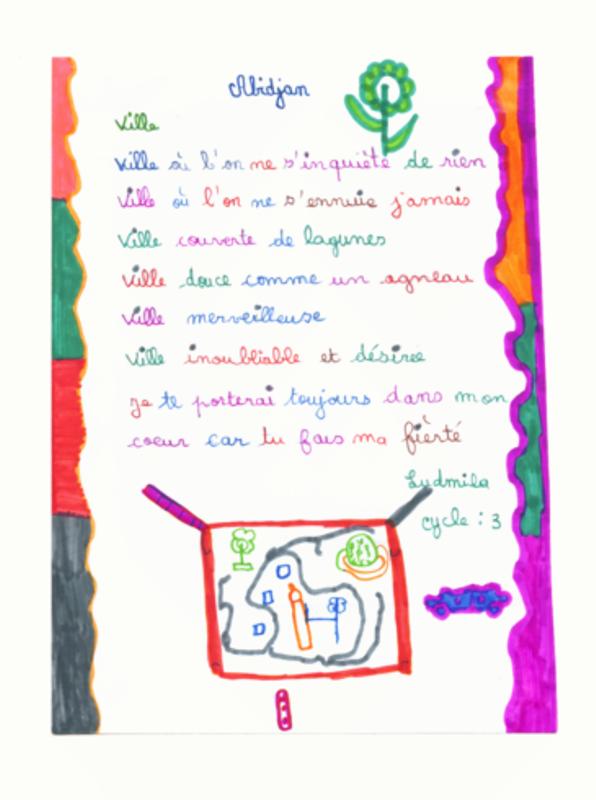 Abidjan
Ville
Ville où l'on ne s'inquiète de rien
Ville où l'on ne s'ennuie jamais
Ville couverte de lagunes
Ville douce comme un agneau
Ville merveilleuse
Ville inoubliable et désirée
Je te porterai toujours dans mon
coeur car tu fais ma fièrté
Ludmila
cycle : 3